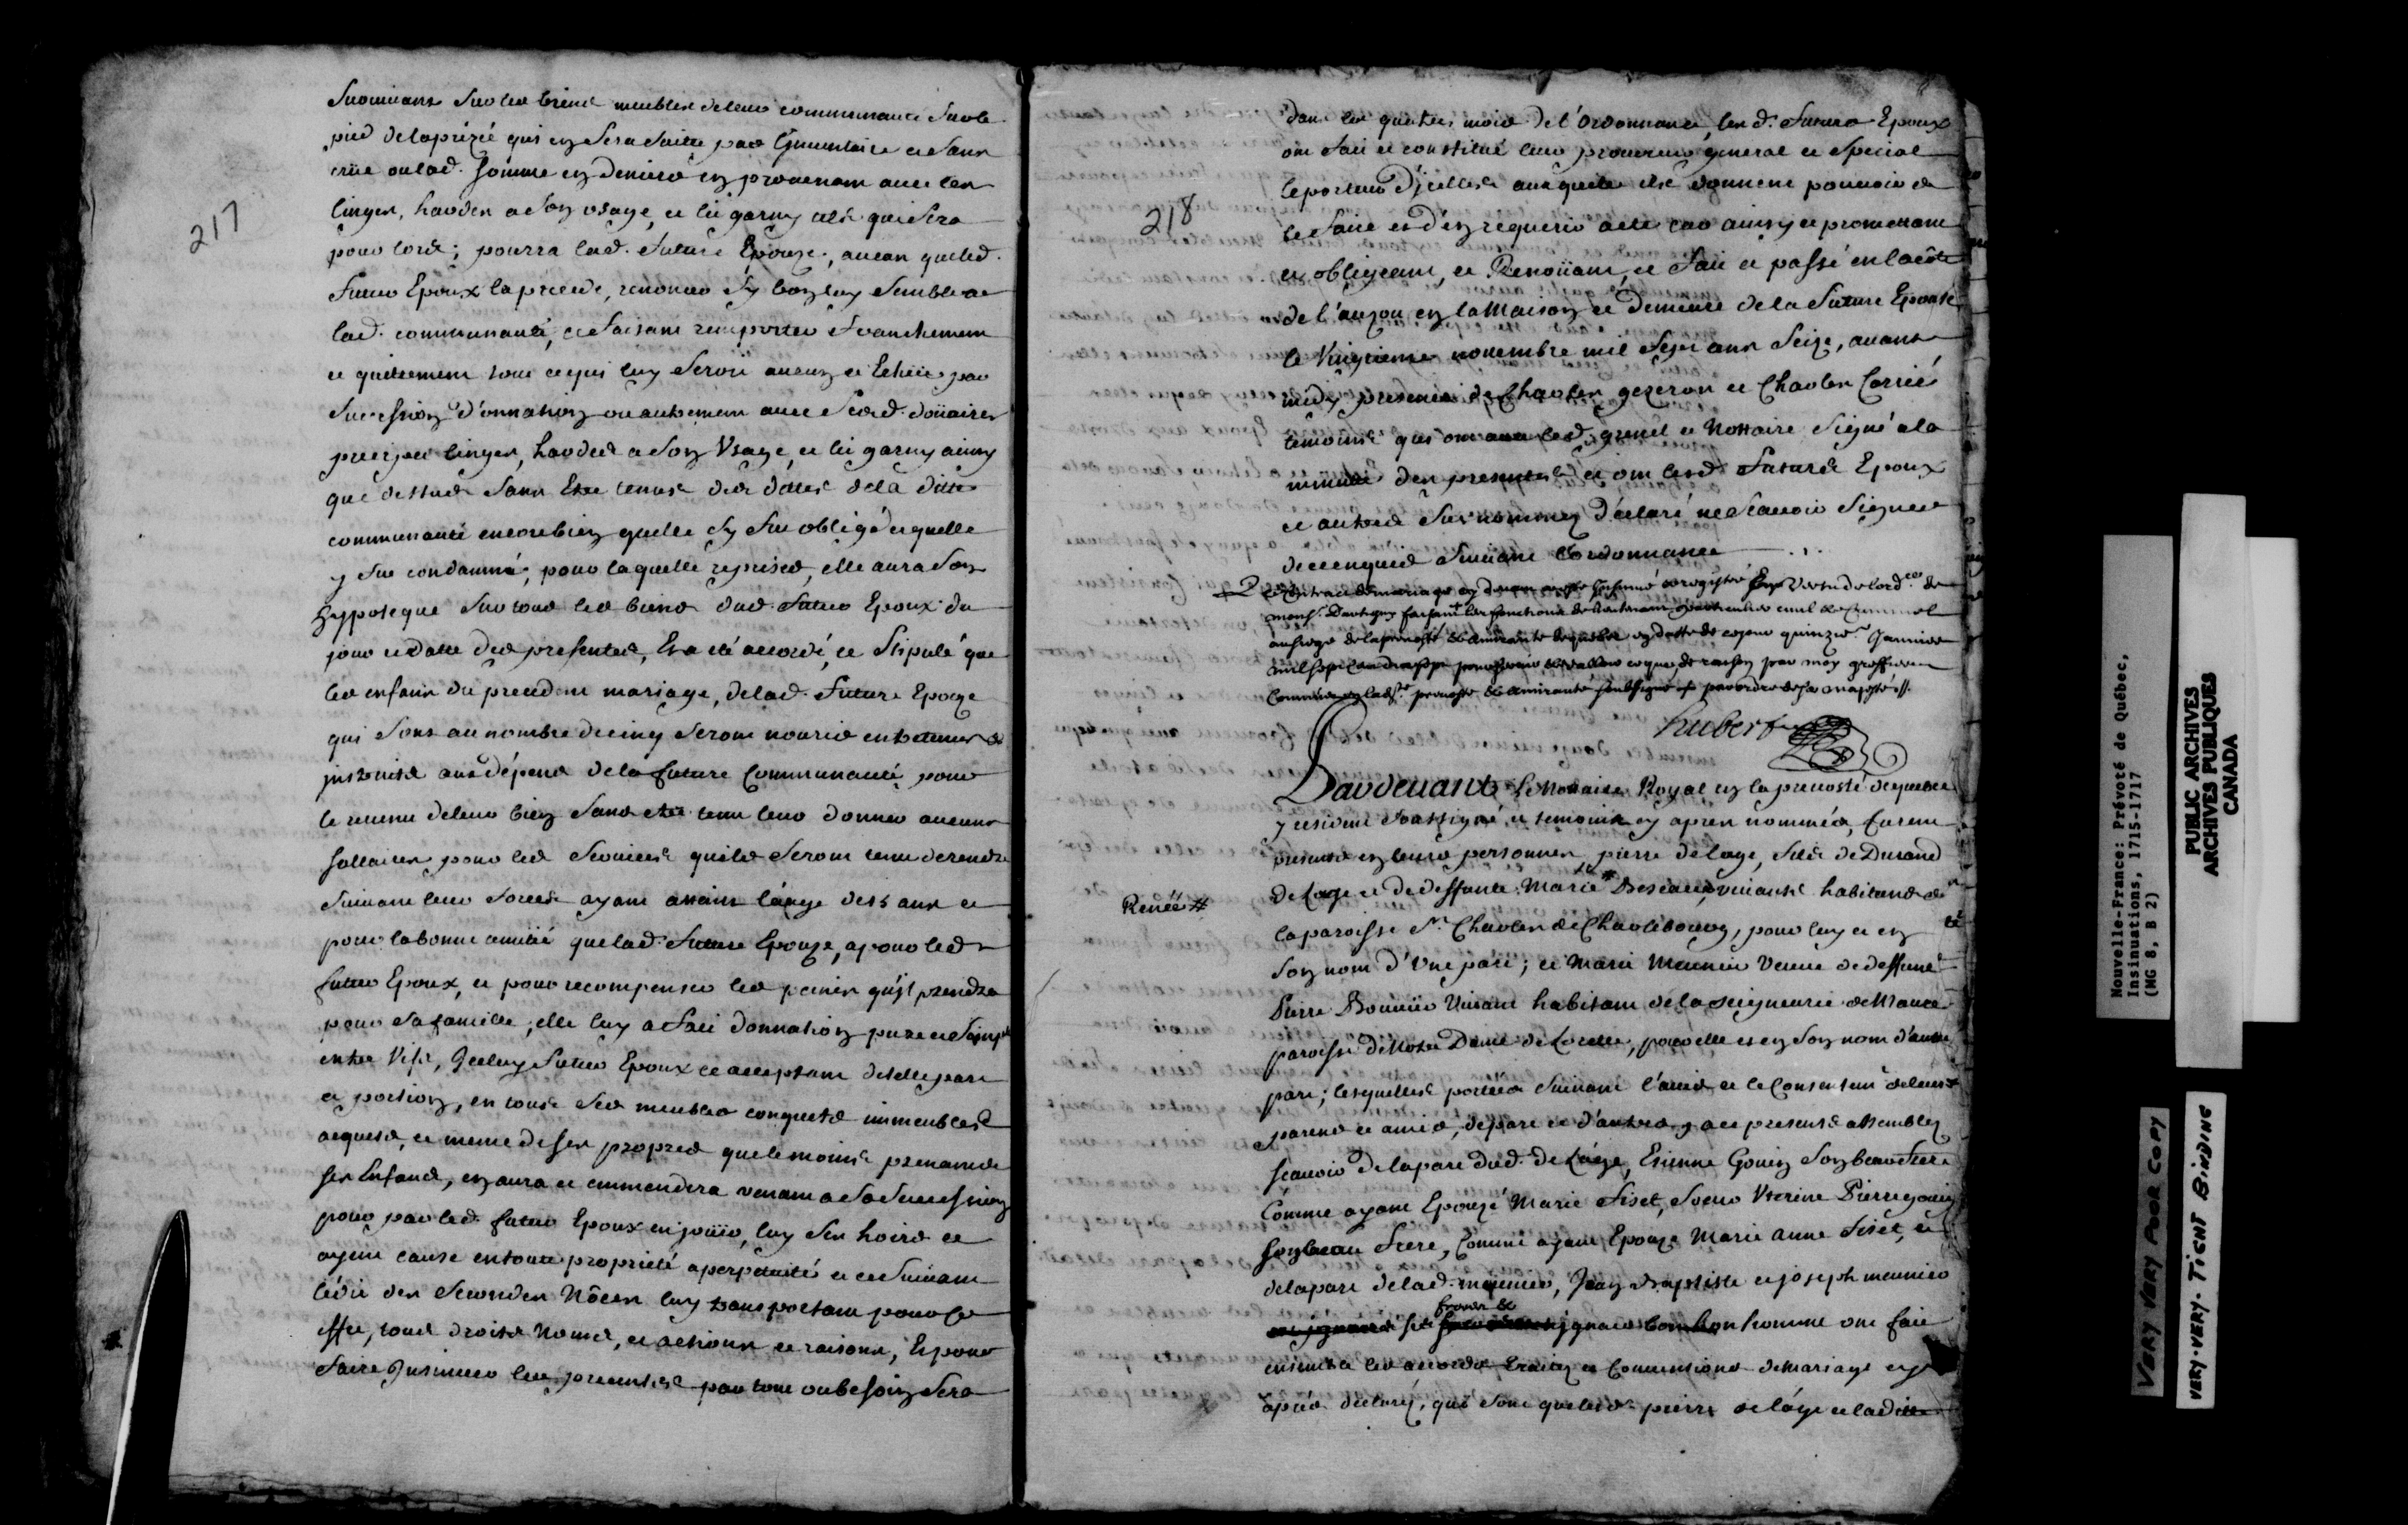 217
Suruiuans Sur les biens meubles de leur communauté Sur le
pied de la prizée qui en Sera faitte par Inuentaire et Sans
crüe ou lad. Somme en deniers en prouenant auec les
linges, hardes a Son Vsage, et lit garny tels qui Sera
pour lors ; pourra lad. future Epouze, aucas que led.
futur Epoux la precede, renoncer Sy bon luy Semble a
lad. communauté, ce faisant remporter franchement
et quittement tout ce qui luy Seroit auenu et Echüe par
Succession d'onnation ou autrement auec Sesd. doüaires
preciput linges, hardes a Son Vsage, et lit garny ainsy
que dessus Sans Estre tenus des dittes de la ditte
communauté encore bien quelle Sy fut obligé et quelle
y fut condamné ; pour laquelle reprises, elle aura Son
hypoteque Sur tous les biens dud. futur Epoux du
jour et datte des presentes, Et a été accordé, et Stipulé que
les enfans du precedent mariage, de lad. future Epouze
qui Sont au nombre de cinq Seront nouris entretenus et
instruits aux dépens de la future Communauté pour
le reuenu de leur bien Sans etre tenu leur donner aucuns
sallaires pour les Seruices quils Seront tenu de rendre
Suiuant leur forces ayant attaint l'áage de 15 ans et
pour la bonne amitié que lad. future Epouze, a pour led.
futur Epoux, et pour recompenser les peines qu'jl prendra
pour Sa famille ; elle luy a fait donnation pure et Simple
entre Vifs, Iceluy futur Epoux ce acceptant de telle part
et portion, en tous Ses meubles conquets immeubles
acquets, et meme de Ses propres que le moins prenant de
Ses Enfans, en aura et emmendera venant a Sa Succession
pour par led. futur Epoux en joüir, luy Ses hoirs et
ayent cause en toutte propriété a perpetuité et ce Suiuant
l'édit des Secondes Nôces luy transportant pour cet
effet, tous droits Noms, et actions et raisons, Et pour
faire Insinuer les presentes par tout ou besoin Sera
218
dans les quatres mois de l'Ordonnance, lesd. futurs Epoux
ont fait et constitué leur procureur general et Special
le porteur d'jcelles auxquels ils donnent pouuoir de
le faire et d'en requerir acte car ainsy et promettant
et obligeant, et Renoüant, et fait et passé en la côte
de l'auzon en la Maison et Demeure de la future Epouse
le Vingtieme nouembre mil Sept cens Seize, auant
midy presence de Charles gezeron et Charles Carrié
temoins qui ont auec led. grenet et Nottaire Signé a la
minutte des presentes et ont lesd. futurs Epoux
et autres Sus nommez declaré ne Scauoir Signer
de ce enquis Suiuant l'ordonnance
Le Contract de mariage cy deuant a esté Insinué et registré En Vertu de lord.ce de
mons.r Dartigny faisant les fonctions de lieutenant general ciuil et Criminel
au siege de la preuosté & amirauté de quebec en datte de ce jour quinzie.e Januier
mil sept cens dix sept pour seruir et valloir ce que de raison par moy greffier
Commis en lad.te preuosté & amirauté soubsigné par ordre de sa majesté //.
hubert
Pardeuant Le Nottaire Royal en la preuosté de quebec
y resident Soussigné et temoins cy apres nommés, furent
presents en leurs personnes pierre delage, fils de Durand
de Lage et de deffunte Marie # viuants habitans de
Renée #
la paroisse S.t Charles de Charlebourg, pour luy et en
Son nom d'Vne part ; et Marie Meunier Veuue de deffunt
Pierre Bouuier Viuant habitant de la Seigneurie de Maure
paroisse de Notre Dame de Lorette, pour elle et en Son nom d'autre
part ; lesquelles parties Suiuant l'auis et le Consentem.t de leurs
parens et amis, de part et d'autres, a ce presents assemblez
Scauoir de la part dud. de Lâge, Etienne Gouin Son beau frere
Comme ayant Epouzé Marie fiset, Soeur Vterine Pierre gouin
Son beau frere, Comme ayant Epouzé Marie Anne fiset, et
de la part de lad. meunier, Jean Baptiste et joseph meunier
freres &
ses jgnace bonhomme ont fait
ensemble les accords traitez et Conuentions de Mariage cy
apres declarez, qui Sont que led. pierre de láge et laditte
Nouvelle-France: Prévoté de Québec,
Insinuations, 1715-1717
(MG 8, B 2)
PUBLIC ARCHIVES
ARCHIVES PUBLIQUES
CANADA
VERY VERY POOR COPY
VERY-VERY-TIGHT BINDING